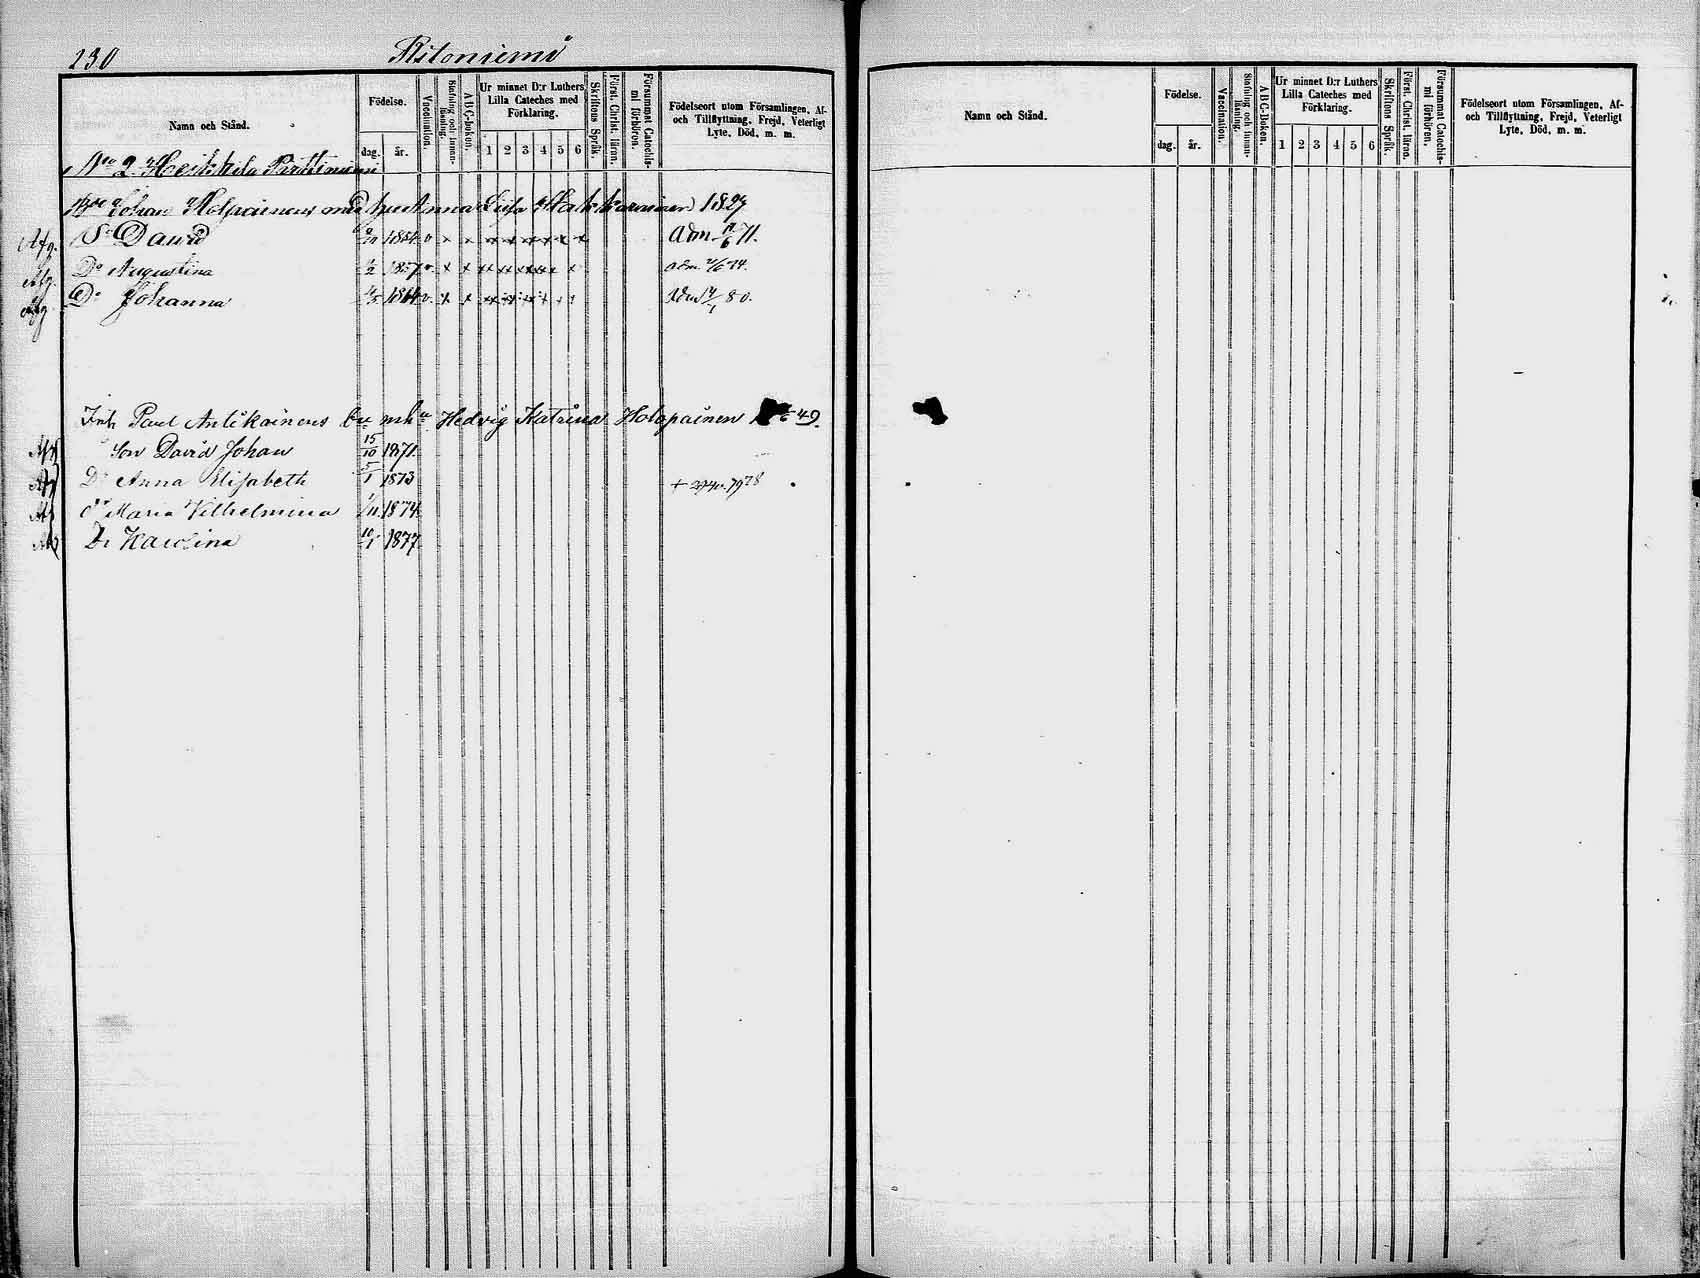 230 Ritoniemi
Namn och Stånd.
Födelse.
dag. år.
Vaccination.
Stafning och Innanläsning.
ABC-boken.
Ur minnet D:r Luthers
Lilla Cateches med
Förklaring.
1 2 3 4 5 6
Skriftens Språk.
Först. Christ. läran.
Försummat Catechismi förhören.
Födelseort utom Församlingen, Af-
och Tillflyttning, Frejd, Veterligt
Lyte, Död, m. m.
No 2 Heikkilä
Johan Holpainens med hu Anna Lisa 1827
Afg. So David 1854 v x x Adm 71.
Afg. Do Augustina 1/2 1857 v x x adm 74.
Afg Do Johanna 1864 v x x Adm 80.
Inh Pavel Antikainens Hedvig Katrina Holopainen 49.
Son David Johan 15/10 1871.
Afg Do Anna Elisabeth 5/1 1873 + 78
Maria Vilhelmina 1/11 1874
Dr Karolina 10/1 1877
Namn och Stånd.
Födelse.
dag. år.
Vaccination.
Stafning och Innanläsning.
ABC-Boken.
Ur minnet D:r Luthers
Lilla Cateches med
Förklaring.
1 2 3 4 5 6
Skriftens Språk.
Först. Christ. läran.
Försummat Catechismi förhören.
Födelseort utom Församlingen, Af-
och Tillflyttning, Frejd, Veterligt
Lyte, Död, m. m.